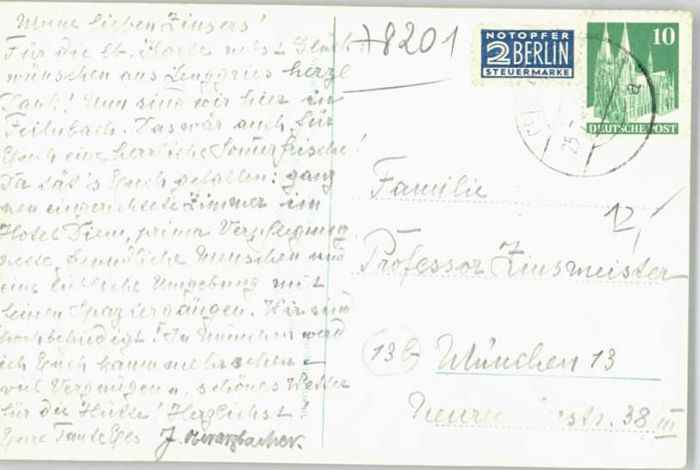 Meine lieben Zinsers!
Für die Karte nebst Glück-
wünschen aus Lenggries herzl.
Dank! Nun sind wir hier in
Feilnbach. Das wär auch für
Euch eine herrliche Sommerfrische!
Da tät's Euch gefallen: ganz
neu eingerichtete Zimmer im
Hotel, prima Verpflegung,
nette, freundliche Menschen und
eine liebliche Umgebung mit
Spaziergängen. Wir sind
hochbefriedigt! In München werd
ich Euch kaum mehr sehen –
viel Vergnügen u. schönes Wetter
für die Hütte! Herzlichst
Eure Tante Els
8201
NOTOPFER
2 BERLIN
STEUERMARKE
10
DEUTSCHE POST
Familie
Professor Zinsmeister
13b München 13
38/III